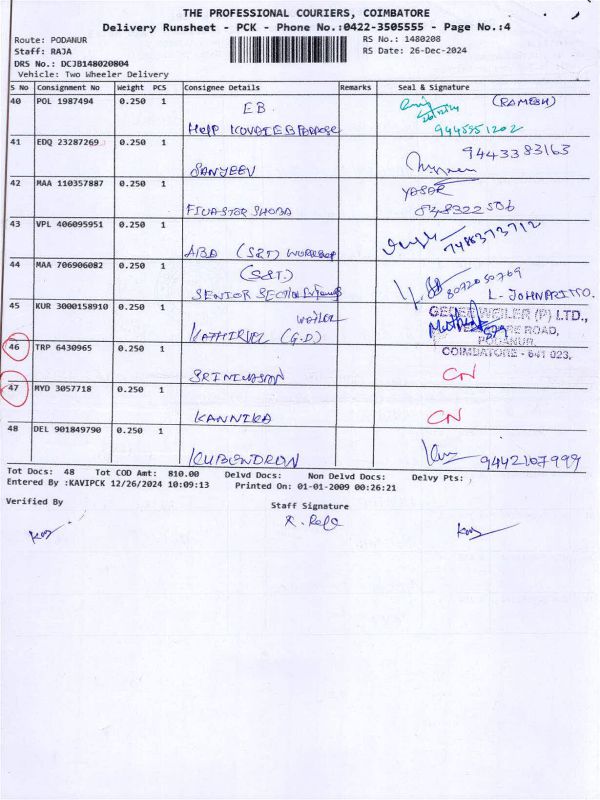 THE PROFESSIONAL COURIERS, COIMBATORE
Delivery Runsheet - PCK - Phone No.:0422-3505555 - Page No.:4
Route: PODANUR
RS No.: 1480208
Staff: RAJA
RS Date: 26-Dec-2024
DRS No.: DCJB148020804
Vehicle: Two Wheeler Delivery
S No Consignment No Weight PCS Consignee Details Remarks Seal & Signature
40 POL 1987494 0.250 1 EB (RAMESH)
26/12/24
9445551202
41 EDQ 23287269 0.250 1 SANJEEV 9443383163
42 MAA 110357887 0.250 1 YASAR
43 VPL 406095951 0.250 1 ABA (S&T) WORKSHOP 7448373712
44 MAA 706906082 0.250 1 (S&T)
SENIOR SECTION 8072050769
45 KUR 3000158910 0.250 1 KATHIRVEL (G.D)
(P) LTD.,
ROAD,
PODANUR,
COIMBATORE - 641 023.
46 TRP 6430965 0.250 1 SRINIVASAN CN
47 MYD 3057718 0.250 1 KANNIKA CN
48 DEL 901849790 0.250 1 KUBENDRON 9442107999
Tot Docs: 48 Tot COD Amt: 810.00 Delvd Docs: Non Delvd Docs: Delvy Pts:
Entered By :KAVIPCK 12/26/2024 10:09:13 Printed On: 01-01-2009 00:26:21
Verified By
Staff Signature
R. Raja